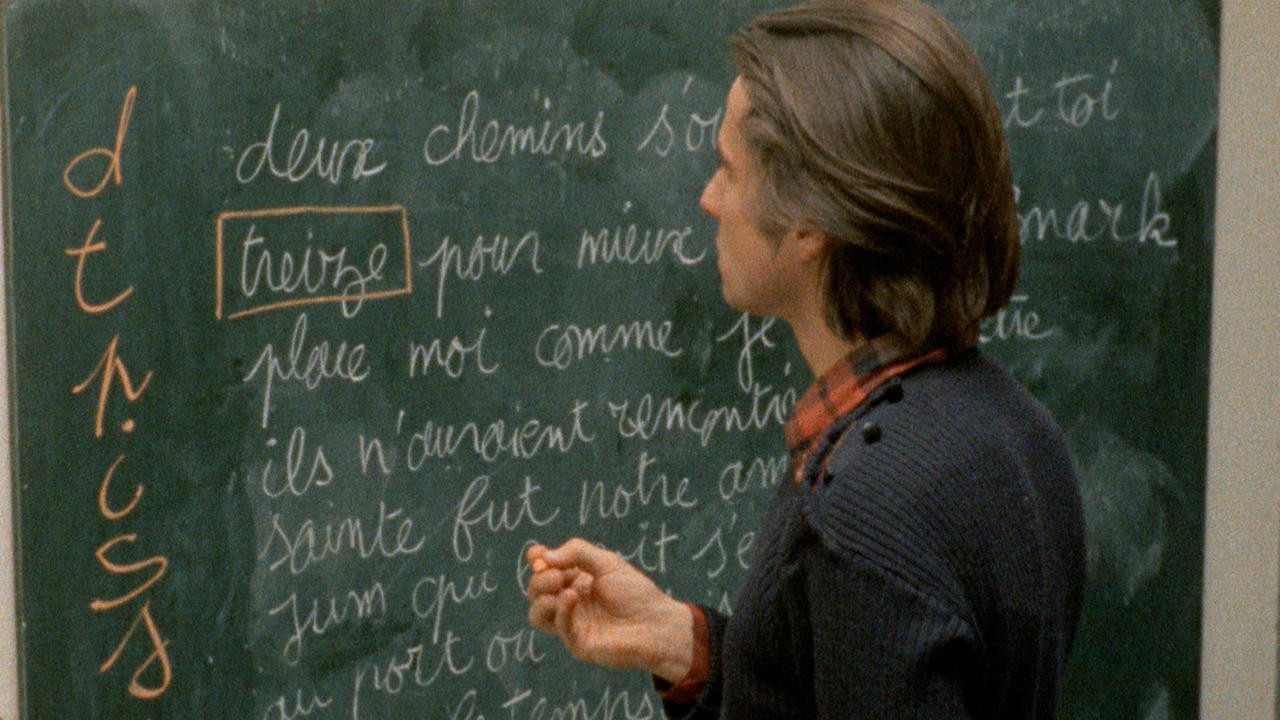 d deux chemins s'ou t toi
t treize pour mieux mark
p. place moi comme je être
i ils n'auraient rencontré
s sainte fut notre am
j jum qui it s'é
au port où
le temps